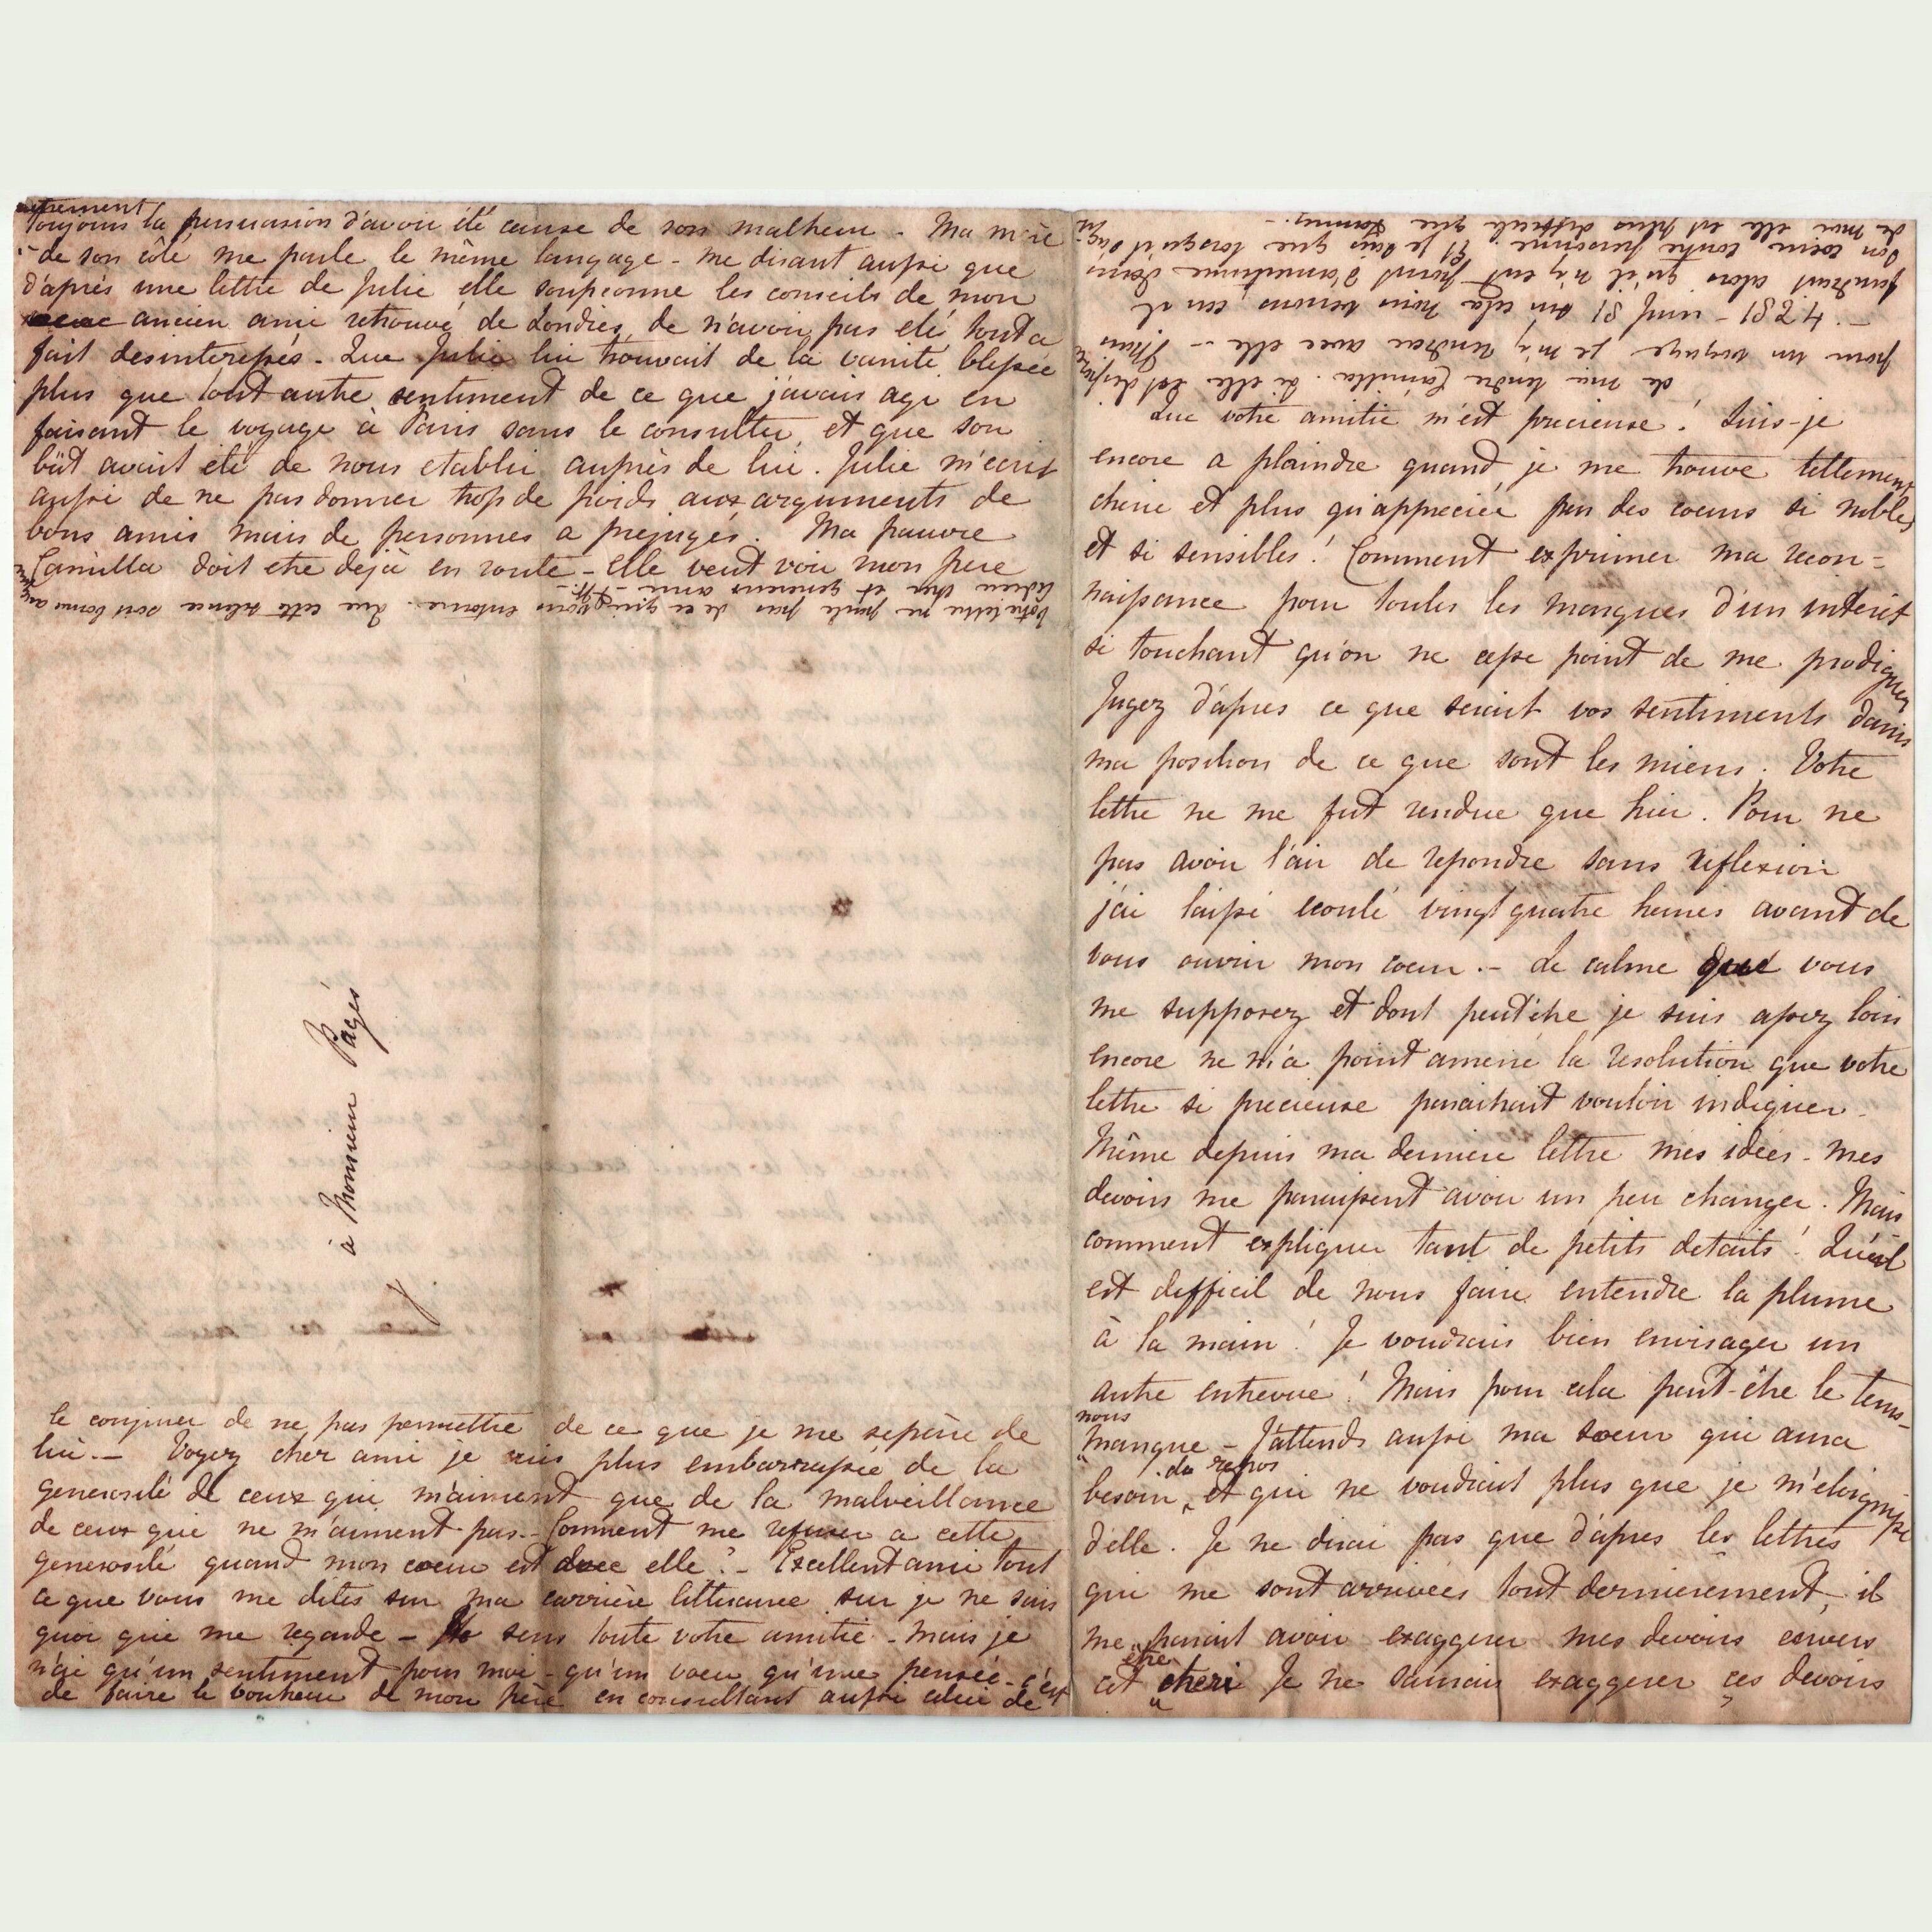 Que votre amitié m'est precieuse! Suis-je
encore a plaindre quand je me trouve tellement
cherie et plus qu'appreciée par des coeurs si nobles
et si sensibles! Comment exprimer ma recon=
naissance pour toutes les marques d'un interêt
si touchant qu'on ne cesse point de me prodiguer
Jugez d'apres ce que serait vos sentiments dans
ma position de ce que sont les miens. Votre
lettre ne me fut rendue que hier. Pour ne
pas avoir l'air de repondre sans reflexion
j'ai laissé ecoulé vingt quatre heures avant de
vous ouvrir mon coeur.- Le calme que vous
me supposez et dont peutêtre je suis assez loin
encore ne m'a point amené la resolution que votre
lettre si precieuse paraissait vouloir indiquer-
Même depuis ma derniere lettre mes idées - mes
devoirs me paraissent avoir un peu changer. Mais
comment expliquer tant de petits details! Qu'il
est difficil de nous faire entendre la plume
à la main! Je voudrais bien envisager un
autre entrevue! Mais pour cela peut-être le tems-
nous
manque - J'attends aussi ma soeur qui aura
du repos
besoin et qui ne voudrait plus que je m'éloignasse
d'elle. Je ne dirai pas que d'apres les lettres
qui me sont arrivées tout dernierement, il
me parait avoir exaggerer mes devoirs envers
être
cet cheri Je ne saurais exaggerer ces devoirs
toujours la persuasion d'avoir été cause de son malheur - Ma mère
- de son côté me parle le même langage - me disant aussi que
d'après une lettre de Julie elle soupconne les conseils de mon
ancien ami retrouvé de Londres, de n'avoir pas été tout a
fait desinteressés. Que Julie lui trouvait de la vanité blessée
plus que tout autre sentiment de ce que j'avais agi en
faisant le voyage à Paris sans le consulter, et que son
bût avait été de nous etablir auprès de lui. Julie m'ecrit
aussi de ne pas donner trop de poids aux arguments de
bons amis mais de personnes a prejugés. Ma pauvre
Camilla doit etre dejà en route - elle veut voir mon pere
le conjurer de ne pas permettre de ce que je me separe de
lui.- Voyez cher ami je suis plus embarrassée de la
generosité de ceux qui m'aiment que de la malveillance
de ceux qui ne m'aiment pas.- Comment me refuser a cette
generosité quand mon coeur est avec elle? - Excellent ami tout
ce que vous me dites sur ma carrière litteraire sur je ne sais
quoi qui me regarde - sens toute votre amitié - mais je
n'ai qu'un sentiment pour moi - qu'un voeu qu'une pensée - c'est
de faire le bonheur de mon père en consultant aussi celui de
de ma tendre Camilla. Si elle est disposée
pour un voyage je m'y rendrai avec elle - Mais
faudrait alors qu'il n'y eut point d'amertume dans
son coeur contre personne. Et je sais que lorsqu'il s'agit
de moi elle est plus difficile que
Votre lettre ne parle pas de ce qui vous entoure. Que cette silence soit bonne augure
Adieu cher et genereux ami -
à Monsieur Pagès